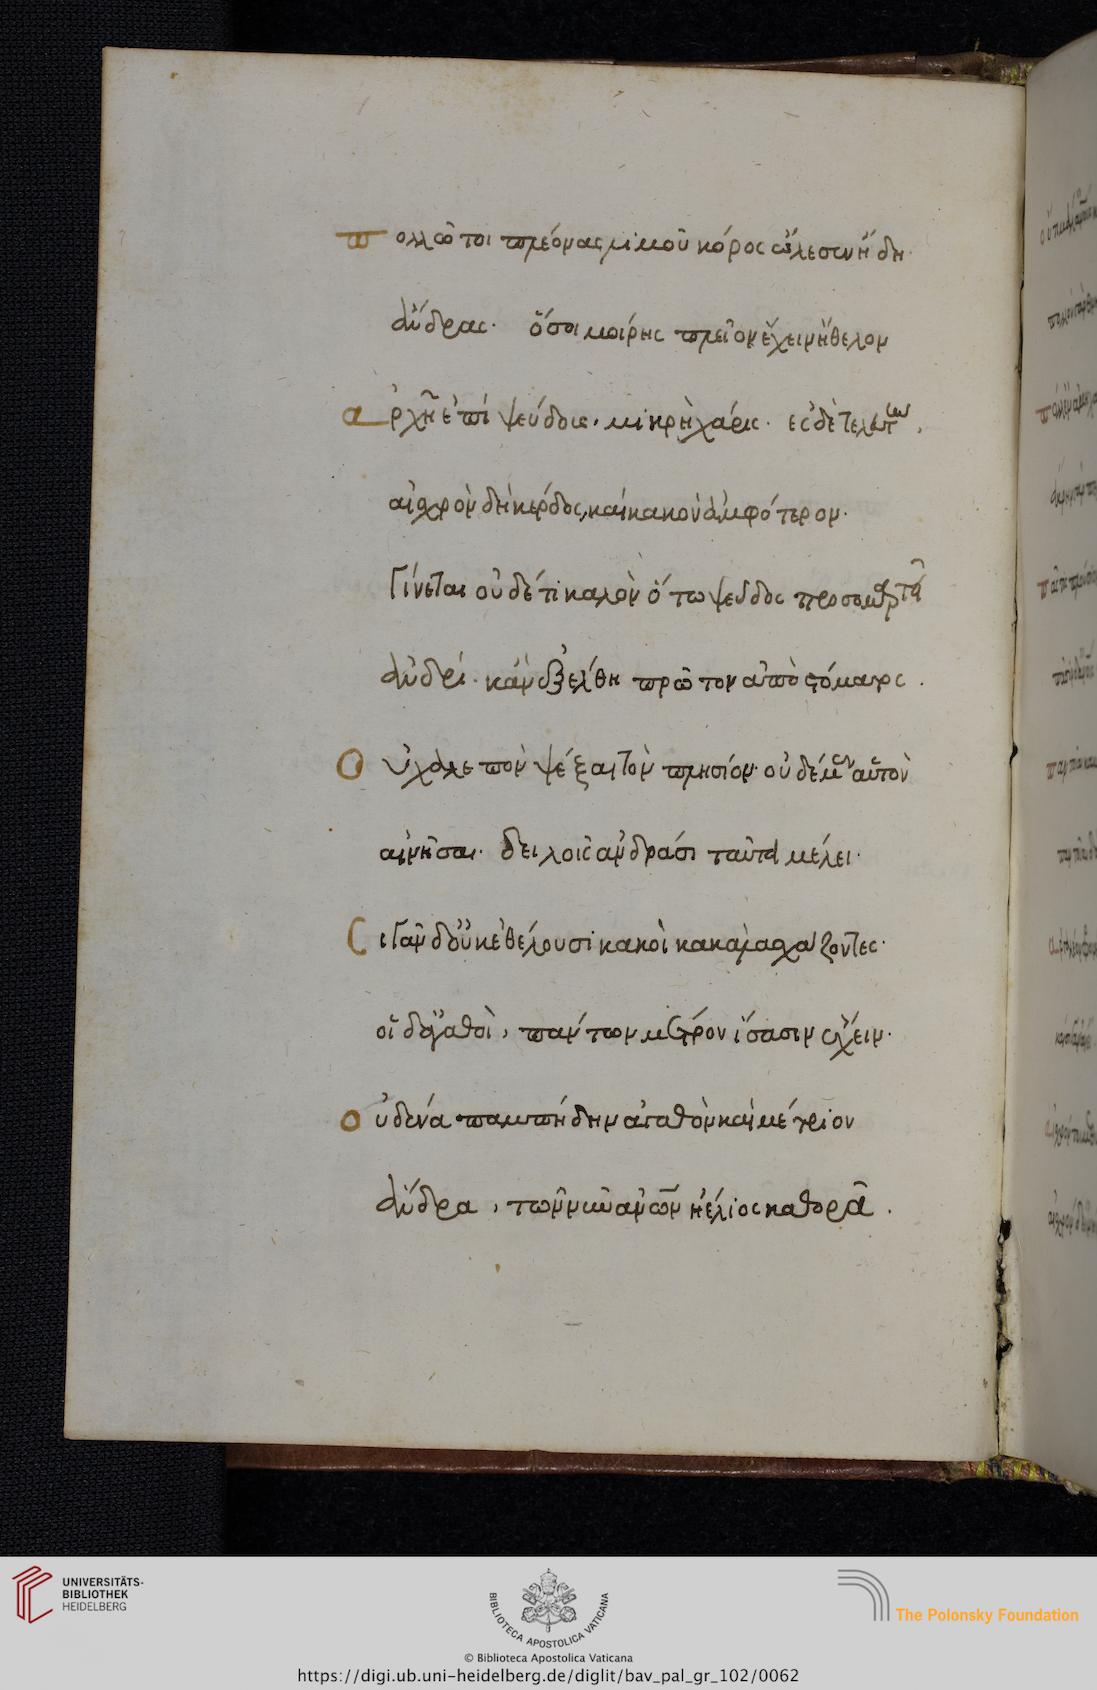 πολλῶ τοι πλέονας λιμοῦ κόρος ὤλεσεν ἤδη·
ἄνδρας· ὅσοι μοίρης πλεῖον ἔχειν ἤθελον
ἀρχῆ ἐπὶ ψεύδους· μικρὴ χάρις· ἐς δὲ τελευτὴν,
αἰσχρὸν δὴ κέρδος, καὶ κακὸν ἀμφότερον·
Γίνεται οὐδέ τι καλὸν ὅτω ψεῦδος προσομαρτῆ
ἀνδρί· κἂν ἐξέλθη πρῶτον ἀπὸ στόματος.
Οὐ χαλεπὸν ψέξαι τὸν πλησίον· οὐδὲ μὲν αὑτὸν
αἰνῆσαι· δειλοῖς ἀνδράσι ταῦτα μέλει·
Σιγᾶν δ' οὐκ ἐθέλουσι κακοὶ κακὰ λεσχάζοντες·
οἱ δ' ἀγαθοὶ, πάντων μέτρον ἴσασιν ἔχειν·
οὐδένα παμπήδην ἀγαθὸν καὶ μέτριον
ἄνδρα, τῶν νῦν ἀνων ἠέλιος καθορᾶ.
UNIVERSITÄTS-
BIBLIOTHEK
HEIDELBERG
BIBLIOTECA APOSTOLICA VATICANA
The Polonsky Foundation
© Biblioteca Apostolica Vaticana
https://digi.ub.uni-heidelberg.de/diglit/bav_pal_gr_102/0062